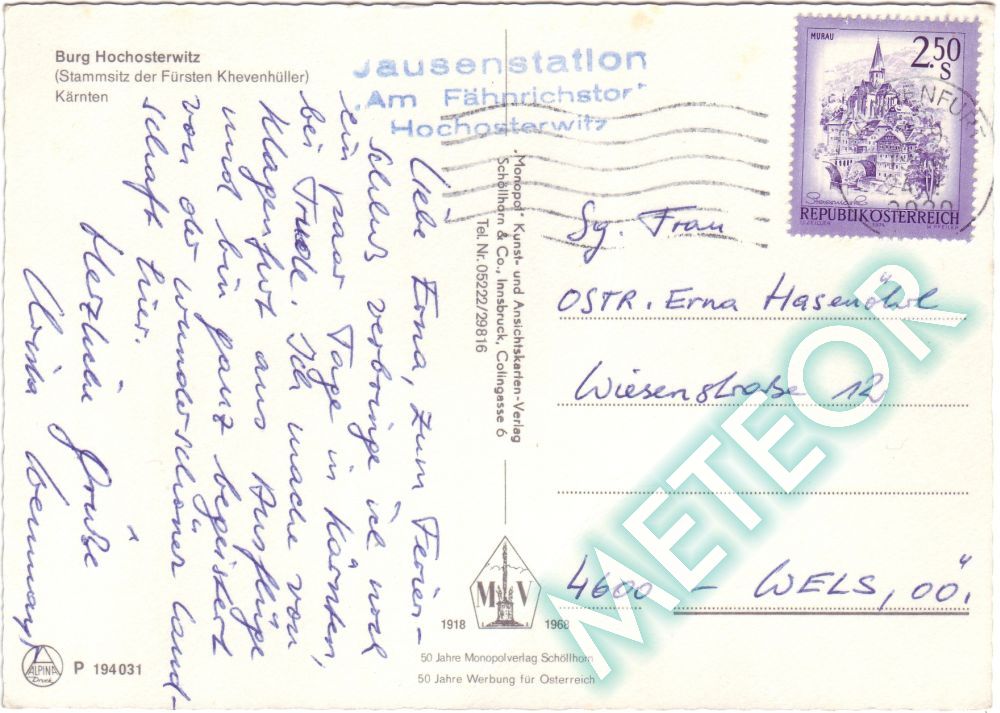 Burg Hochosterwitz
(Stammsitz der Fürsten Khevenhüller)
Kärnten
Jausenstation
"Am Fähnrichstor"
Hochosterwitz
Liebe Erna, zum Ferien-
schluß verbringe ich noch
ein paar Tage in Kärnten,
bei Trudle. Ich mache von
Klagenfurt aus Ausflüge
und bin ganz begeistert
von der wunderschönen Land-
schaft hier.
Herzliche Grüße
"Monopol" Kunst- und Ansichtskarten-Verlag
Schöllhorn & Co., Innsbruck, Colingasse 6
Tel. Nr. 05222/29816
MURAU
2.50
S
Steiermark
REPUBLIK ÖSTERREICH
1974
Sg. Frau
OSTR. Erna Hasenöhrl
Wiesenstraße 12
4600 - WELS, OÖ.
METEOR
M V
1918 1968
50 Jahre Monopolverlag Schöllhorn
50 Jahre Werbung für Österreich
ALPINA
Druck
P 194031